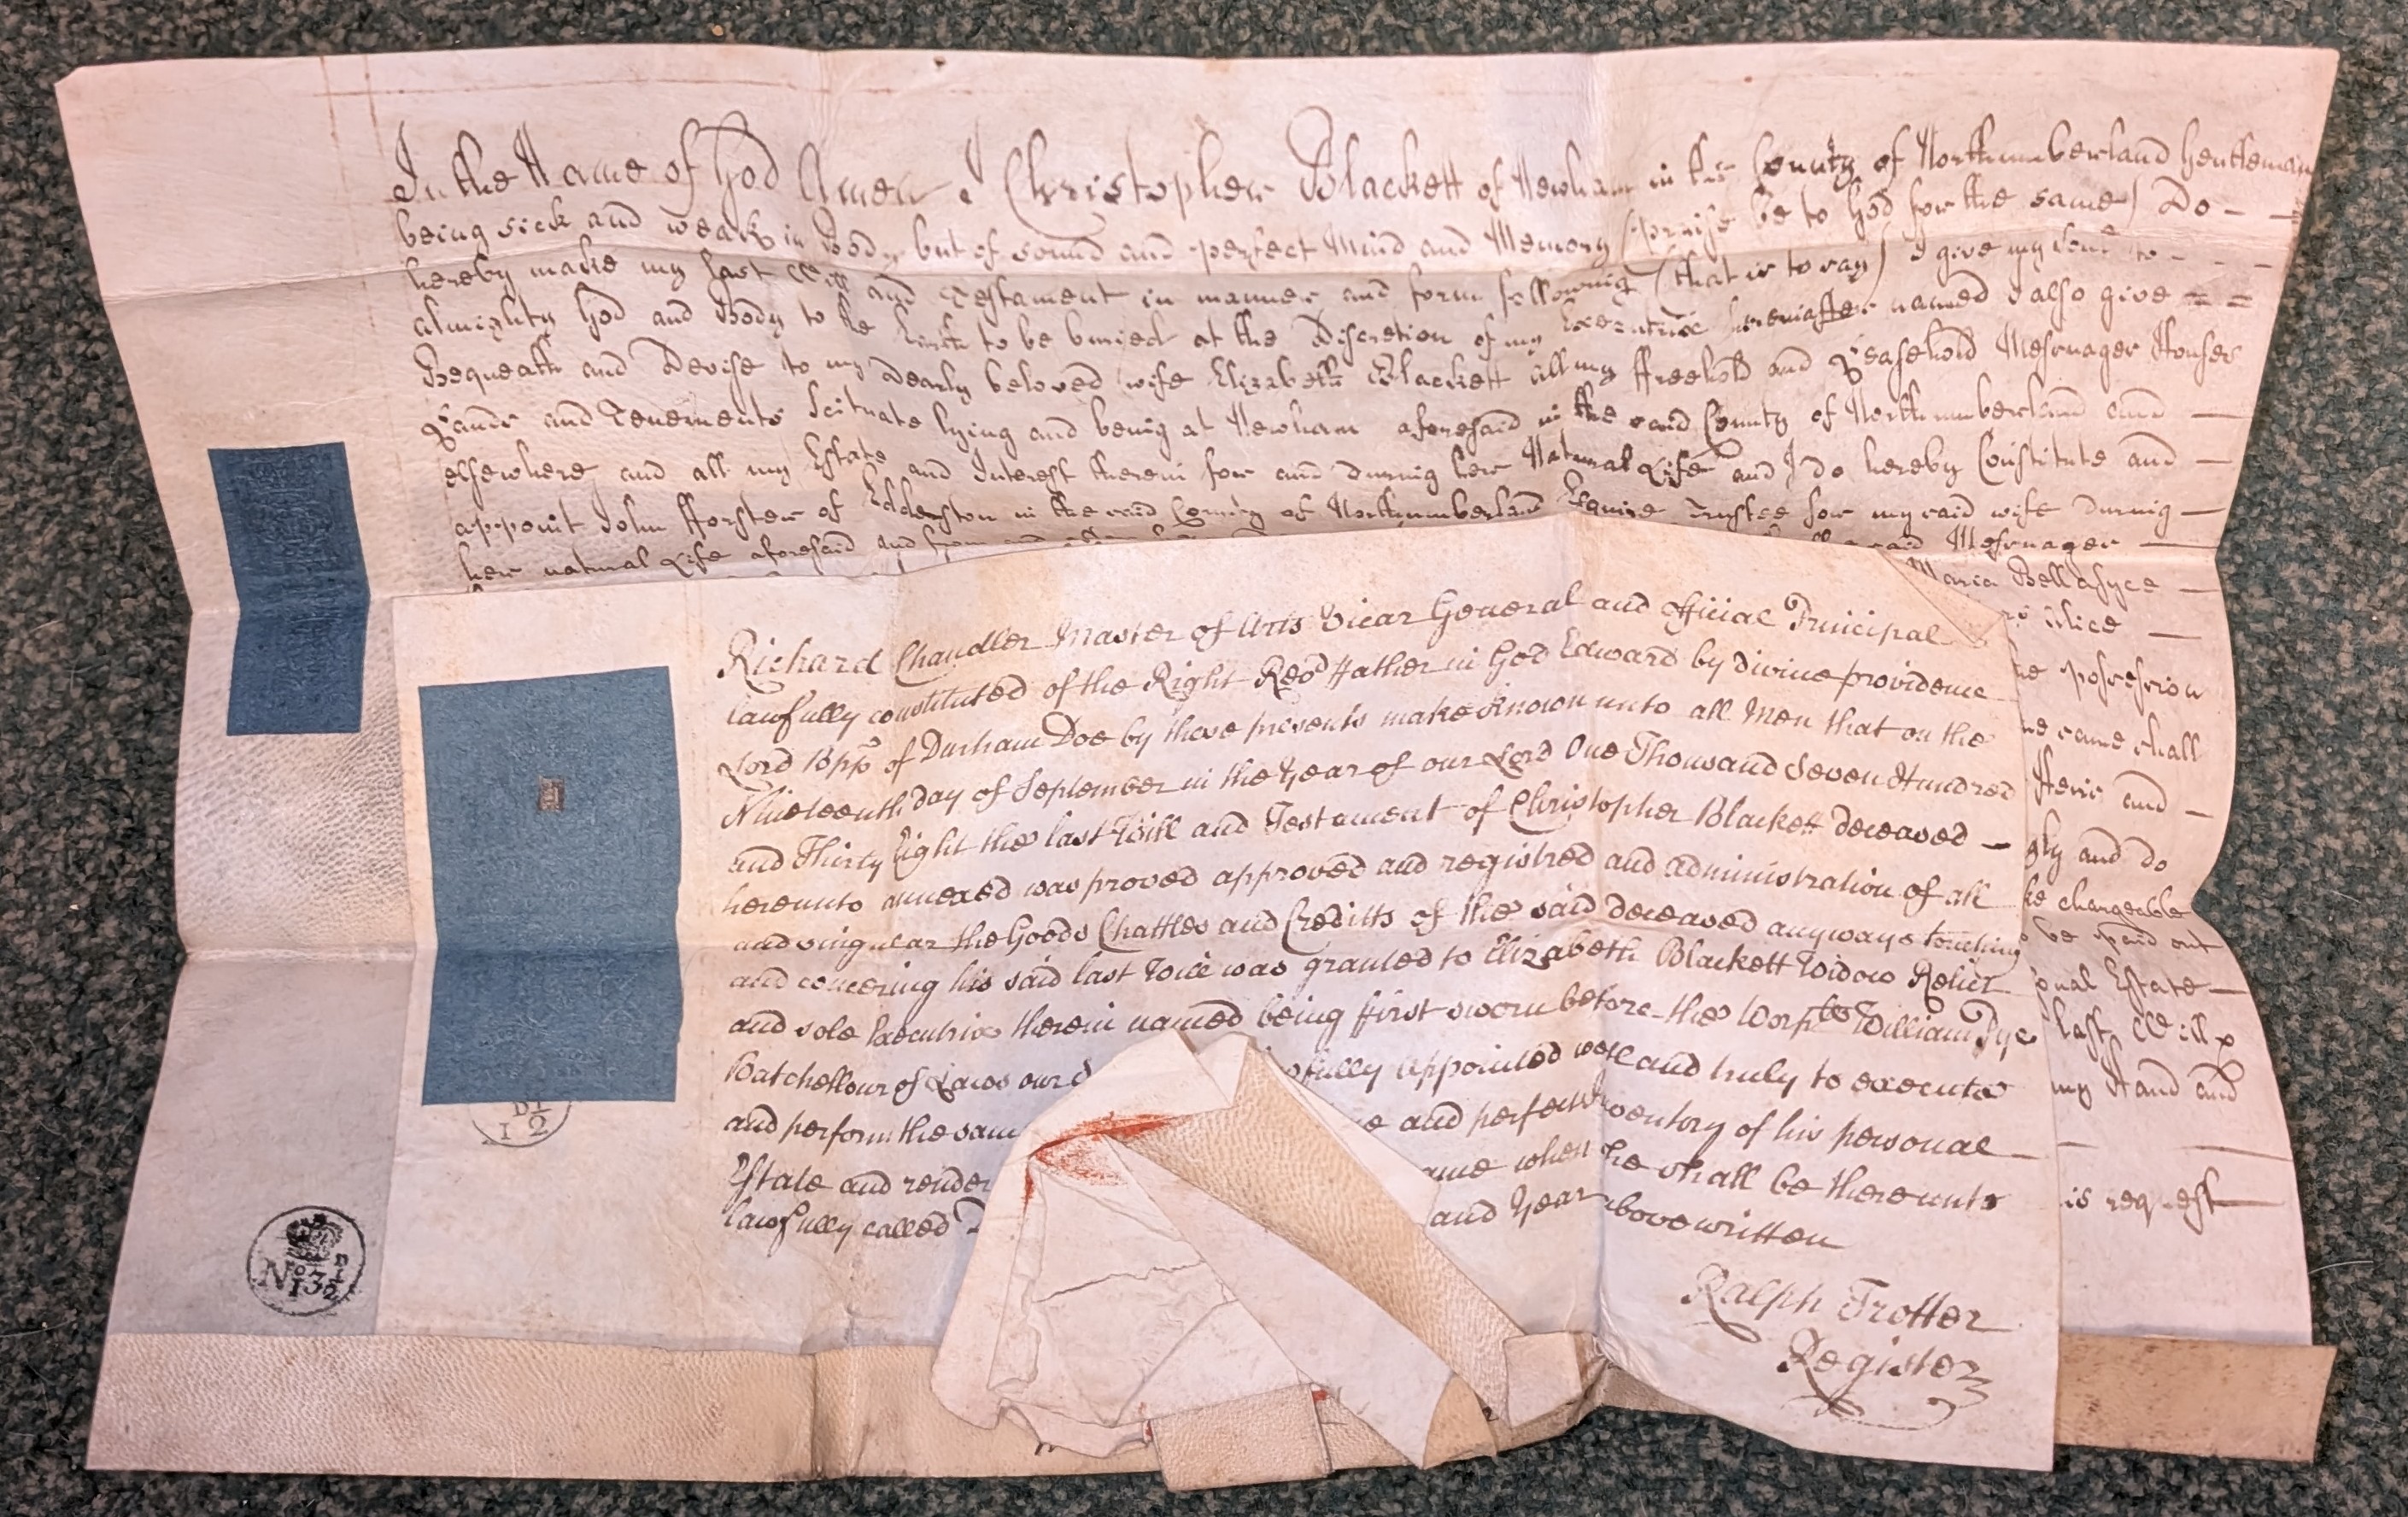 In the Name of God Amen I Christopher Blackett of Newham in the County of Northumberland Gentleman
being sick and weak in Body but of sound and perfect Mind and Memory (praise be to God for the same) Do
hereby make my last Will and Testament in manner and form following (that is to say) I give my Soul to
almighty God and Body to the Earth to be buried at the Discretion of my Executrix hereinafter named I also give
Bequeath and Devise to my dearly beloved wife Elizabeth Blackett all my ffreehold and Leasehold Messuages Houses
Lands and Tenements Scituate lying and being at Newham aforesaid in the said County of Northumberland and
elsewhere and all my Estate and Interest therein for and during her Natural Life and I do hereby Constitute and
appoint John fforster of Edderston in the said County of Northumberland Esquire Trustee for my said wife during
her natural Life aforesaid and from and said Messuages
Maria Bellasyce
Alice
possession
same shall
Heirs and
and do
be chargeable
be paid out
Estate
last Will
my Hand and
is request
Richard Chandler Master of Arts Vicar General and official Principal
lawfully constituted of the Right Revd ffather in God Edward by divine providence
Lord Bpp of Durham Doe by these presents make known unto all Men that on the
Nineteenth day of September in the Year of our Lord One Thousand Seven Hundred
and Thirty Eight the last Will and Testament of Christopher Blackett deceased
hereunto annexed was proved approved and registred and administration of all
and singular the Goods Chattles and Creditts of the said deceased anyways touching
and concering his said last Will was granted to Elizabeth Blackett Widow Relict
and sole Executrix therein named being first sworn before the Worpll William Pye
Batchellour of Laws our fully appointed well and truly to execute
and perform the same and perfect ventory of his personal
Estate and render when he shall be thereunto
lawfully called and Year abovewritten
Ralph Trotter
Register
I 2
No 132